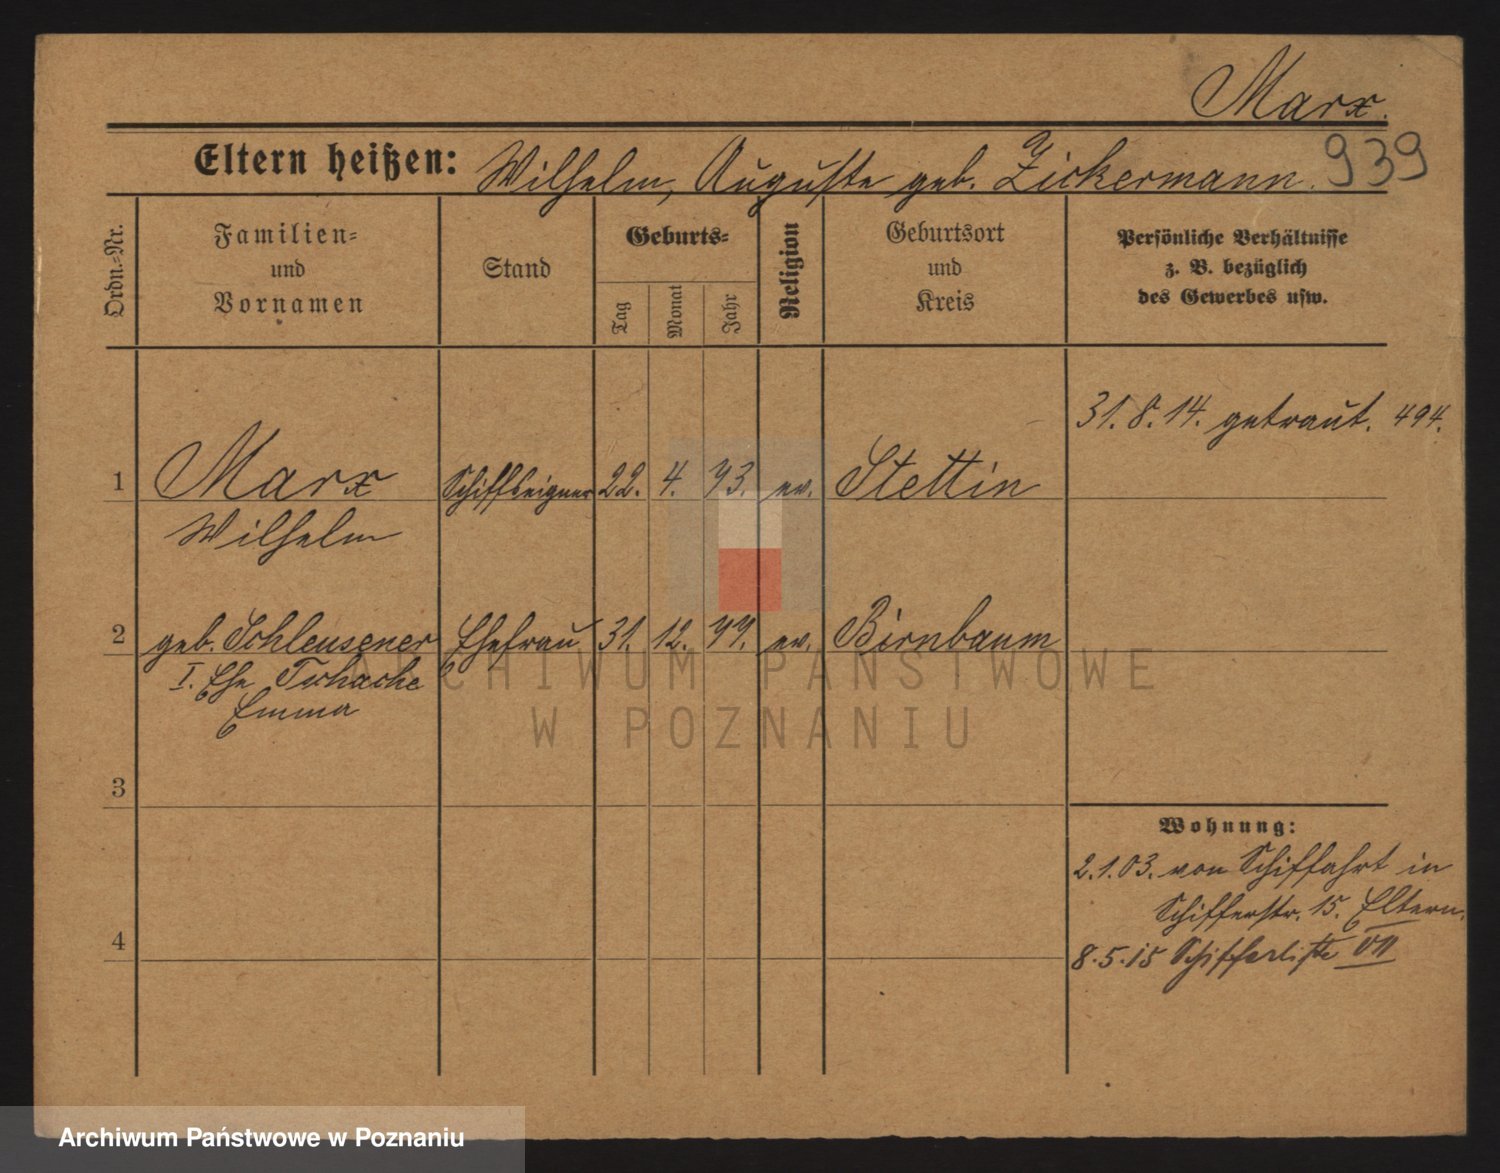 Marx.
Eltern heißen: Wilhelm, Auguste geb. Zickermann.
939
Ordn.-Nr.
Familien-
und
Vornamen
Stand
Geburts-
Tag
Monat
Jahr
Religion
Geburtsort
und
Kreis
Persönliche Verhältnisse
z. B. bezüglich
des Gewerbes usw.
31. 8. 14. getraut. 494.
1 Marx Schiffseigner 22. 4. 73. ev. Stettin
Wilhelm
2 geb. Schleusener Ehefrau 31. 12. 77. ev. Birnbaum
I. Ehe
Emma
3
Wohnung:
2.1.03. von Schiffahrt in
Schifferstr. 15. Eltern.
4
8.5.15 Schifferliste VII
ARCHIWUM PAŃSTWOWE
W POZNANIU
Archiwum Państwowe w Poznaniu